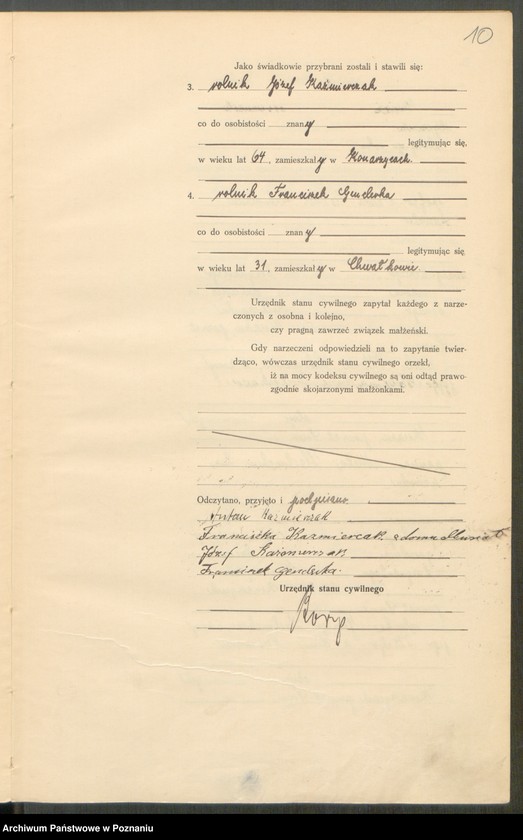 10
Jako świadkowie przybrani zostali i stawili się:
3. rolnik Józef Kaźmierczak
co do osobistości znany
legitymując się,
w wieku lat 64, zamieszkały w Konarzycach.
4. rolnik Franciszek Genderka
co do osobistości znany
legitymując się
w wieku lat 31, zamieszkały w Chwałkowie.
Urzędnik stanu cywilnego zapytał każdego z narze-
czonych z osobna i kolejno,
czy pragną zawrzeć związek małżeński.
Gdy narzeczeni odpowiedzieli na to zapytanie twier-
dząco, wówczas urzędnik stanu cywilnego orzekł,
iż na mocy kodeksu cywilnego są oni odtąd prawo-
zgodnie skojarzonymi małżonkami.
Odczytano, przyjęto i podpisano
Antoni Kaźmierczak
Franciszka Kazmierczak z domu
Józef Kazmierczak
Franciszek Genderka.
Urzędnik stanu cywilnego
Archiwum Państwowe w Poznaniu